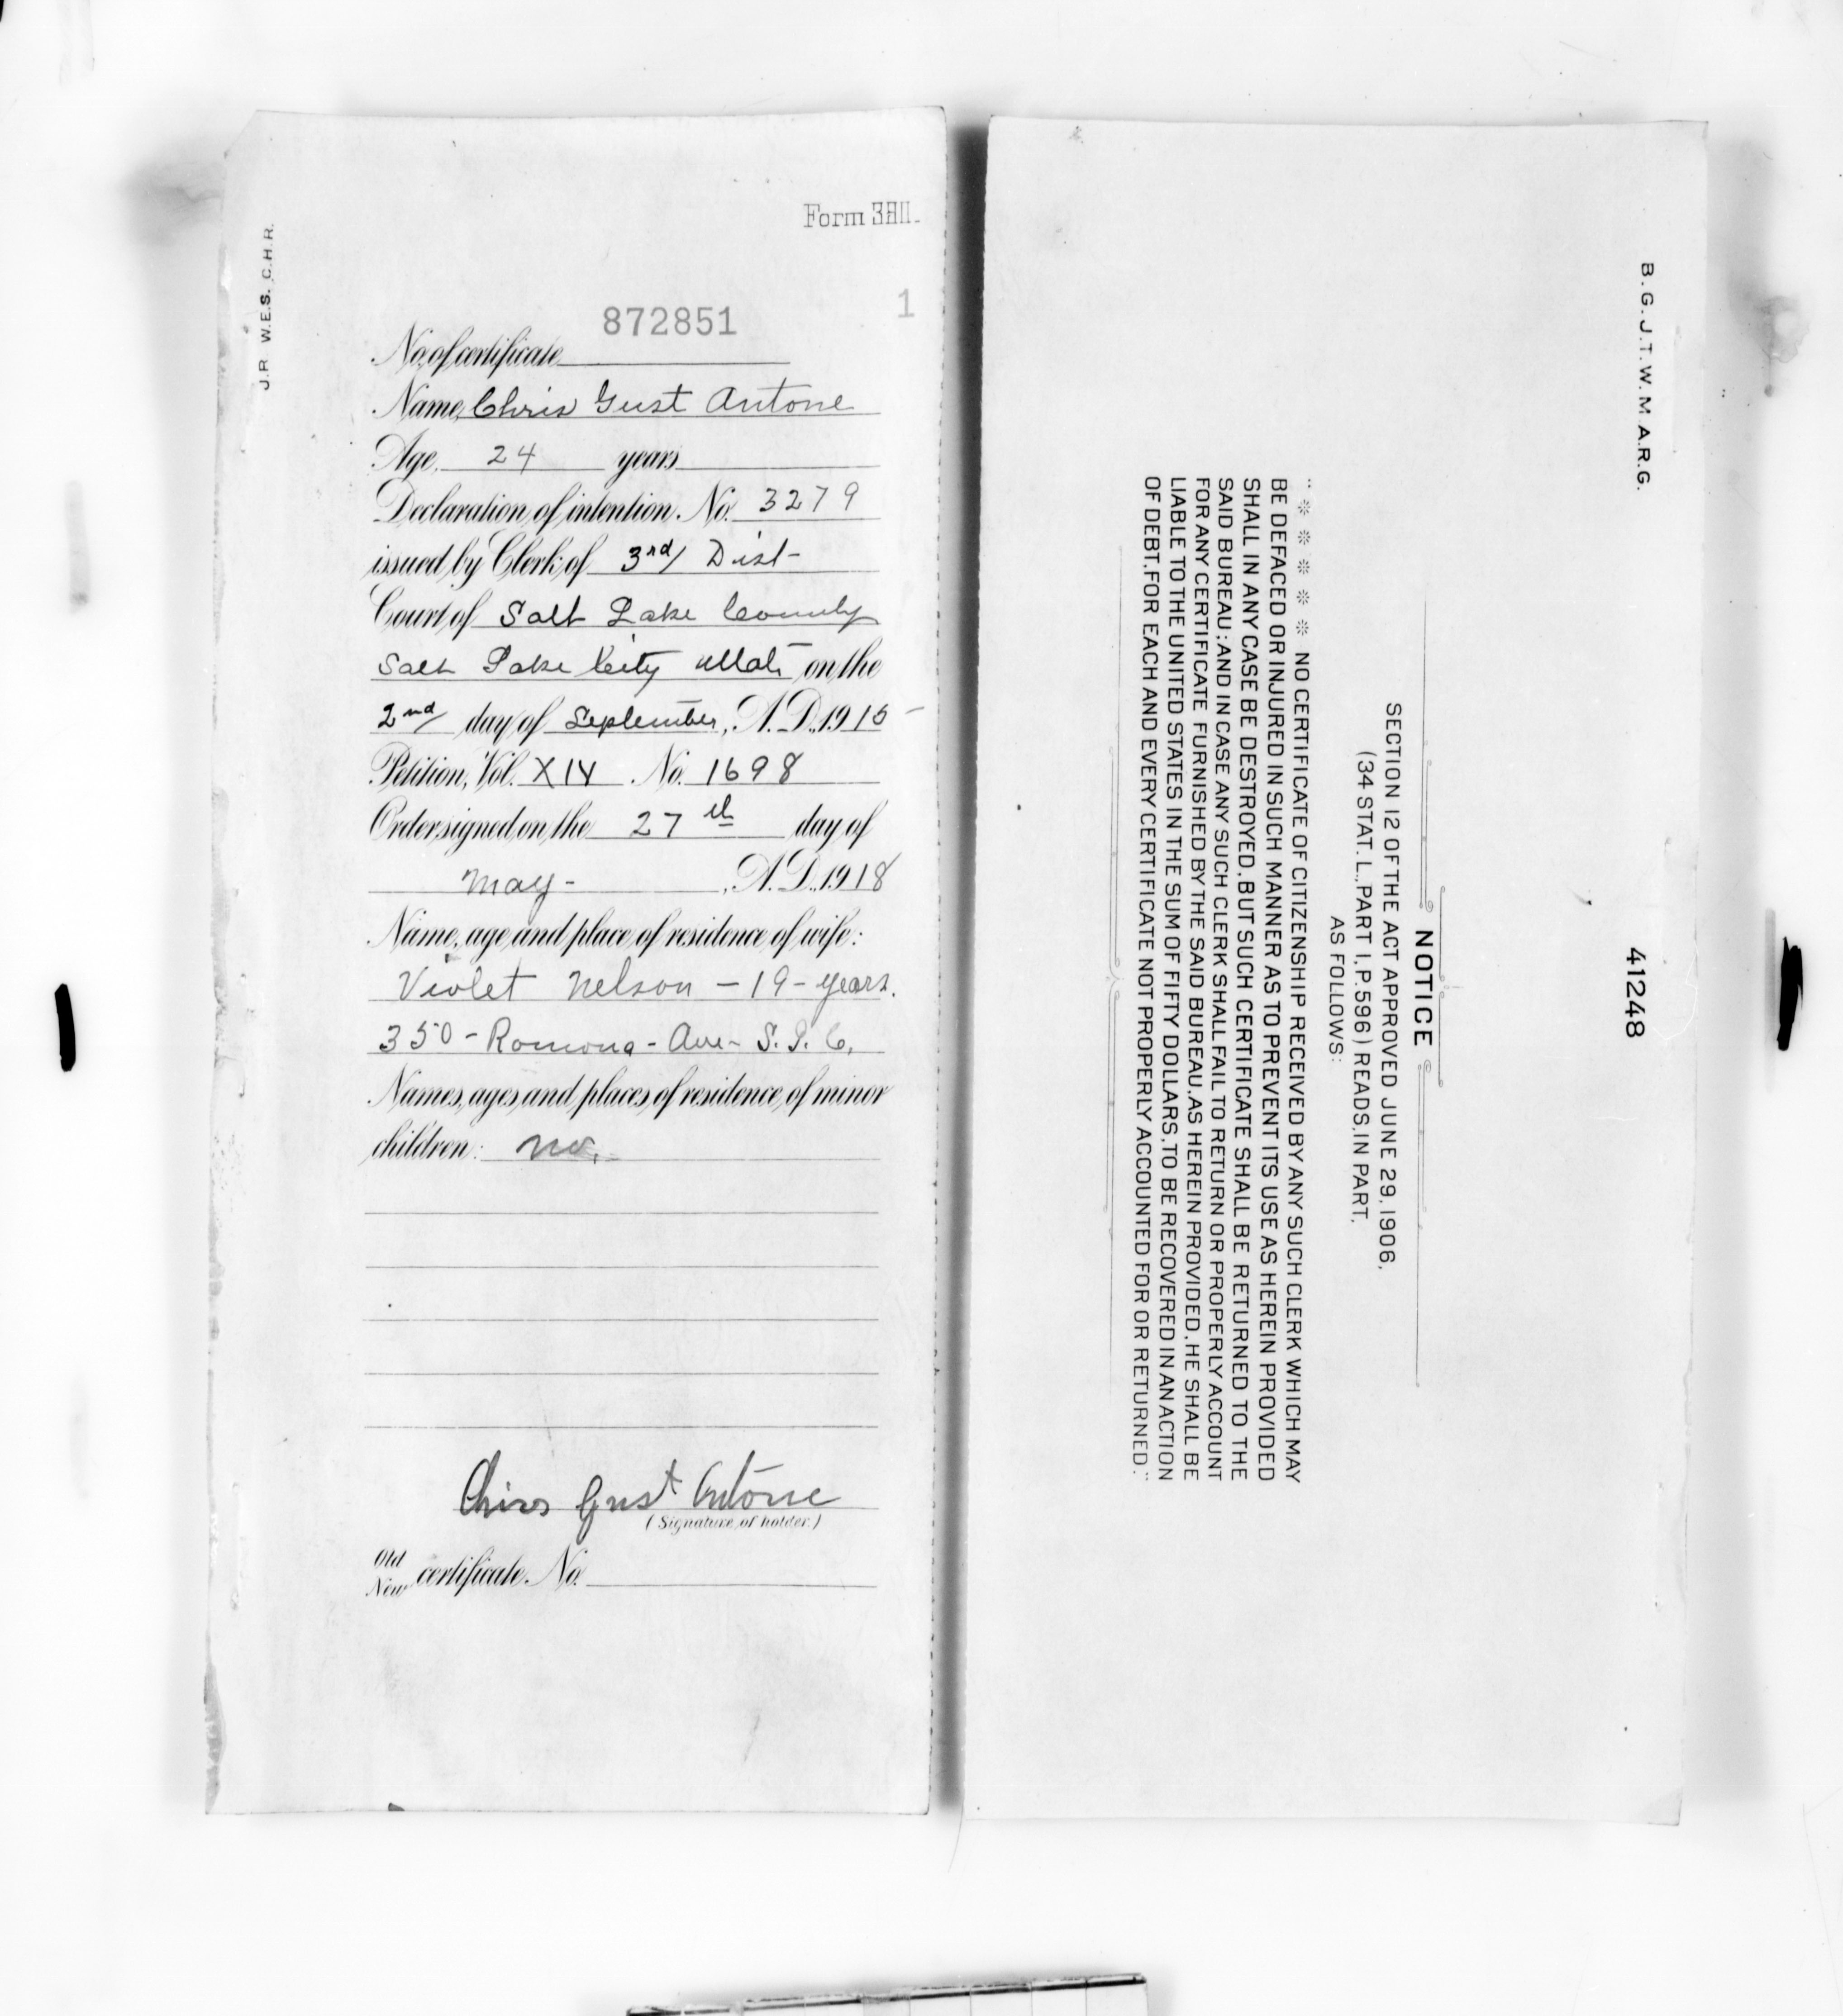 J.R. W.E.S. C.H.R.
1
872851
No. of certificate
Name, Chris Gust Antone
Age, 24 years
Declaration of intention. No. 3279
issued by Clerk of 3rd Dist
Court of Salt Lake County
Salt Lake City Utah on the
2nd day of September, A.D. 1915
Petition, Vol. XIV. No. 1698
Order signed on the 27th day of
May - , A.D. 1918
Name, age and place of residence of wife:
Violet Nelson - 19 - years.
350 - Romona - Ave - S. L. C.
Names, ages and places of residence of minor
children: no.
Chris Gust Antone
(Signature of holder.)
Old
New certificate. No.
B.G. J.T. W.M. A.R.G.
41248
NOTICE
SECTION 12 OF THE ACT APPROVED JUNE 29, 1906,
(34 STAT. L., PART I, P. 596) READS, IN PART,
AS FOLLOWS:
"* * * * * NO CERTIFICATE OF CITIZENSHIP RECEIVED BY ANY SUCH CLERK WHICH MAY
BE DEFACED OR INJURED IN SUCH MANNER AS TO PREVENT ITS USE AS HEREIN PROVIDED
SHALL IN ANY CASE BE DESTROYED, BUT SUCH CERTIFICATE SHALL BE RETURNED TO THE
SAID BUREAU; AND IN CASE ANY SUCH CLERK SHALL FAIL TO RETURN OR PROPERLY ACCOUNT
FOR ANY CERTIFICATE FURNISHED BY THE SAID BUREAU, AS HEREIN PROVIDED, HE SHALL BE
LIABLE TO THE UNITED STATES IN THE SUM OF FIFTY DOLLARS, TO BE RECOVERED IN AN ACTION
OF DEBT, FOR EACH AND EVERY CERTIFICATE NOT PROPERLY ACCOUNTED FOR OR RETURNED."